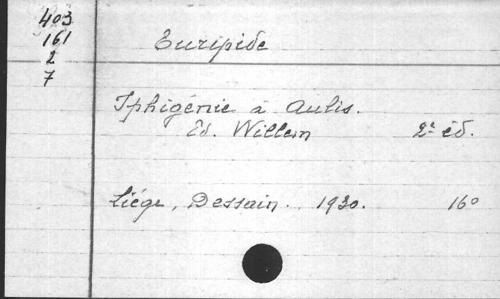 403
161
2
7
Euripide
Iphigénie à Aulis.
Ed. Willem 2e éd.
Liége, Dessain. 1930. 16o